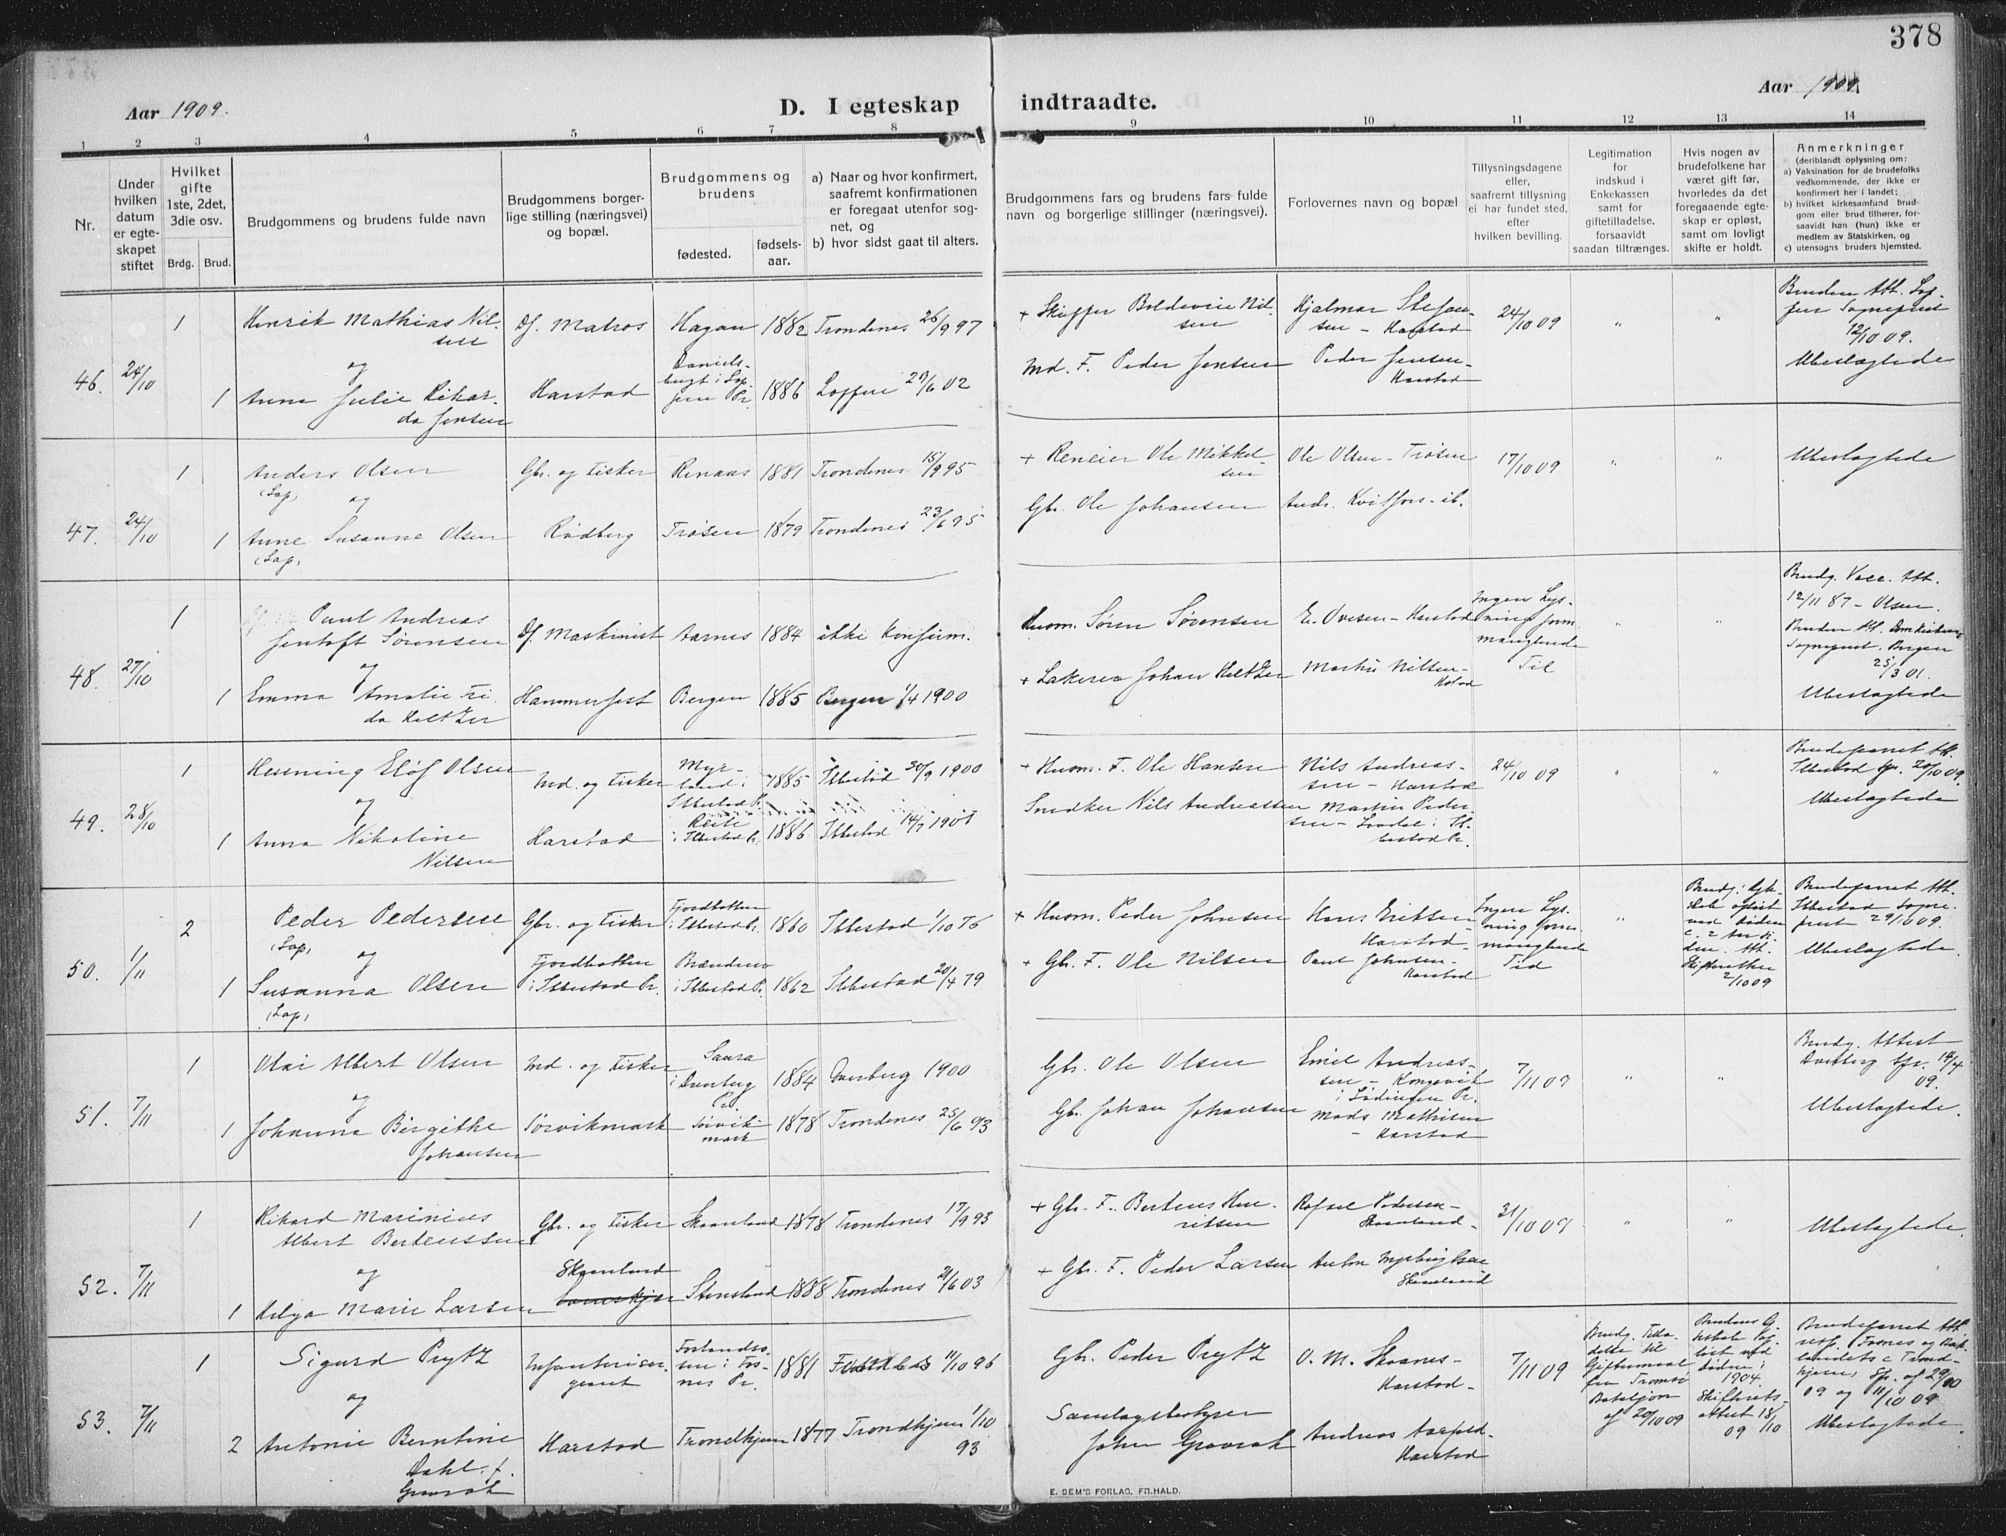 378
Aar 1909.
D. I egteskap indtraadte.
Aar 1909.
1 2 3 4 5 6 7 8 9 10 11 12 13 14
Nr.
Under hvilken datum er egteskapet stiftet
Hvilket gifte 1ste, 2det, 3die osv.
Brdg. Brud.
Brudgommens og brudens fulde navn
Brudgommens borgerlige stilling (næringsvei) og bopæl.
Brudgommens og brudens
fødested.
fødselsaar.
a) Naar og hvor konfirmert, saafremt konfirmationen er foregaat utenfor sognet, og
b) hvor sidst gaat til alters.
Brudgommens fars og brudens fars fulde navn og borgerlige stillinger (næringsvei).
Forlovernes navn og bopæl
Tillysningsdagene eller, saafremt tillysning ei har fundet sted, efter hvilken bevilling.
Legitimation for indskud i Enkekassen samt for giftetilladelse, forsaavidt saadan tiltrænges.
Hvis nogen av brudefolkene har været gift før, hvorledes da det foregaaende egteskap er opløst, samt om lovligt skifte er holdt.
Anmerkninger
(deriblandt oplysning om:
a) Vaksination for de brudefolks vedkommende, der ikke er konfirmert her i landet;
b) hvilket kirkesamfund brudgom eller brud tilhører, forsaavidt han (hun) ikke er medlem av Statskirken, og
c) utensogns bruders hjemsted.
46. 24/10 1 Henrik Mathias Nilsen Df. Matros Hagan 1882 Trondenes 26/9 97
+ Skipper Nilsen Hjalmar Stefansen - Harstad 24/10 09 " " Bruden Att. Loppen Sogneprest 12/10 09.
og
1 Anna Julie Rikarda Jensen Harstad Danielsbugt i Loppen Pr. 1886 Loppen 29/6 02
Md. F. Peder Jensen Peder Jensen - Harstad Ubeslegtede
47. 24/10 1 Anders Olsen (Lap) Gbr. og Fisker Renaas 1881 Trondenes 15/9 95
+ Reneier Ole Mikkelsen Ole Olsen - Trøsen 17/10 09 " " Ubeslegtede
og
1 Anne Susanne Olsen (Lap) Rødberg Trøsen 1879 Trondenes 23/6 95
Gbr. Ole Johansen Andr. Kvitfors - ib.
48. 27/10 1 Paul Andreas Jentoft Sørensen Df. Maskinist Aarnes 1884 ikke Konfirm.
Husm. Søren Sørensen E. Ovesen - Harstad Ingen Lysning form. manglende Tid " " Brudg. Vacc. Att. 12/11 87 - Olsen.
og
1 Emma Amalie Frida Heltzer Hammerfest Bergen 1885 Bergen 1/4 1900
+ Johan Heltzer Martin Nilsen - Bruden Att. Domkirkens Sogneprst. Bergen 25/3 01. Ubeslegtede
49. 28/10 1 Henning Eløf Olsen Md. og Fisker Myrland i Ibbestad Pr. 1885 Ibbestad 30/9 1900
+ Husm. F. Ole Hansen Nils Andreassen - Harstad 24/10 09 " " Brudeparret Att. Ibbestad Sp. 20/10 09.
og
1 Anna Nikoline Nilsen Harstad i Ibbestad Pr. 1886 Ibbestad 14/7 1901
Snedker Nils Andreassen Martin Pedersen - i Ibbestad Pr. Ubeslegtede
50. 1/11 2 Peder Pedersen (Lap) Gbr. og Fisker Fjordbotten i Ibbestad Pr. 1860 Ibbestad 1/10 76
+ Husm. Peder Johnsen Hans Eriksen - Harstad Ingen Lysning form. manglende Tid " Brudg. Egteskab opløst ved Døden Att. Skifteretten 2/10 09 Brudeparret Att. Ibbestad Sogneprest 29/10 09.
og
1 Susanna Olsen (Lap) Fjordbotten i Ibbestad Pr. i Ibbestad Pr 1862 Ibbestad 20/4 79
+ Gbr. F. Ole Nilsen Paul Johnsen - Harstad Ubeslegtede.
51. 7/11 1 Olai Albert Olsen Md. og Fisker Saura i Dverberg Pr. 1884 Dverberg 1900
Gbr. Ole Olsen Emil Andreassen - Kongsvik i Lødingen Pr. 7/11 09 " " Brudg. Attest Dverberg Spr. 14/4 09.
og
1 Johanna Birgithe Johansen Sørvikmark Sørvikmark 1878 Trondenes 25/6 93
Gbr. Johan Johansen Mads Mathisen - Harstad Ubeslegtede.
52. 7/11 1 Rikard Marinius Albert Berteussen Gbr. og Fisker Skaanland 1878 Trondenes 17/9 93
+ Gbr. F. Berteus Henriksen Rafael Pedersen - Skaanland - 31/10 09 " " Ubeslegtede.
og
1 Helga Marie Larsen Skaanland Stensland 1888 Trondenes 21/6 03
+ Gbr. F. Peder Larsen Anton Skaanland
53. 7/11 1 Sigurd Prytz Infanterisergeant i Fosnes Pr. 1881 Fosnes 11/10 96
Gbr. Peder Prytz O. M. Skaanes - Harstad - 7/11 09 Brudg. Tilladelse til Giftermaal fra Tromsø Bataljon af 20/10 09 Brudens Egteskab opløst ved Døden i 1904. Skifteretsattest 18/10 09 Brudeparret Att. resp. Fosnes og Trondhjem, Sp. af 29/10 09 og 11/10 09
og
2 Antonie Berntine Dahl f. Graarak Harstad Trondhjem 1877 Trondhjem 1/10 93
John Graarak Andreas Aarseth - Harstad Ubeslegtede.
E. SEM'S FORLAG, FR.HALD.